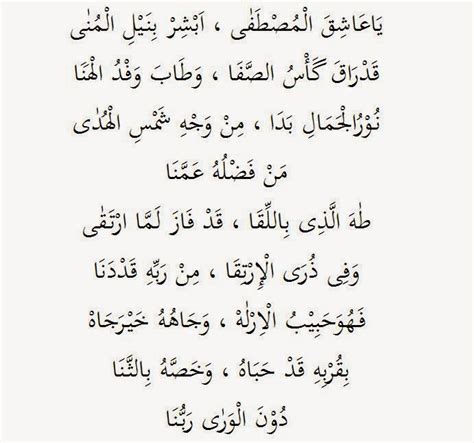 يَاعَاشِقَ الْمُصْطَفٰى ، اَبْشِرْ بِنَيْلِ الْمُنٰى
قَدْرَاقَ كَأْسُ الصَّفَا ، وَطَابَ وَفْدُ الْهَنَا
نُوْرُالْجَمَالِ بَدَا ، مِنْ وَجْهِ شَمْسِ الْهُدٰى
مَنْ فَضْلُهُ عَمَّنَا
طٰهَ الَّذِى بِاللِّقَا ، قَدْ فَازَ لَمَّا ارْتَقٰى
وَفِى ذُرَى الْإِرْتِقَا ، مِنْ رَبِّهِ قَدْدَنَا
فَهُوَحَبِيْبُ الْاِلٰهْ ، وَجَاهُهُ خَيْرُجَاهْ
بِقُرْبِهِ قَدْ حَبَاهُ ، وَخَصَّهُ بِالثَّنَا
دُوْنَ الْوَرٰى رَبُّنَا